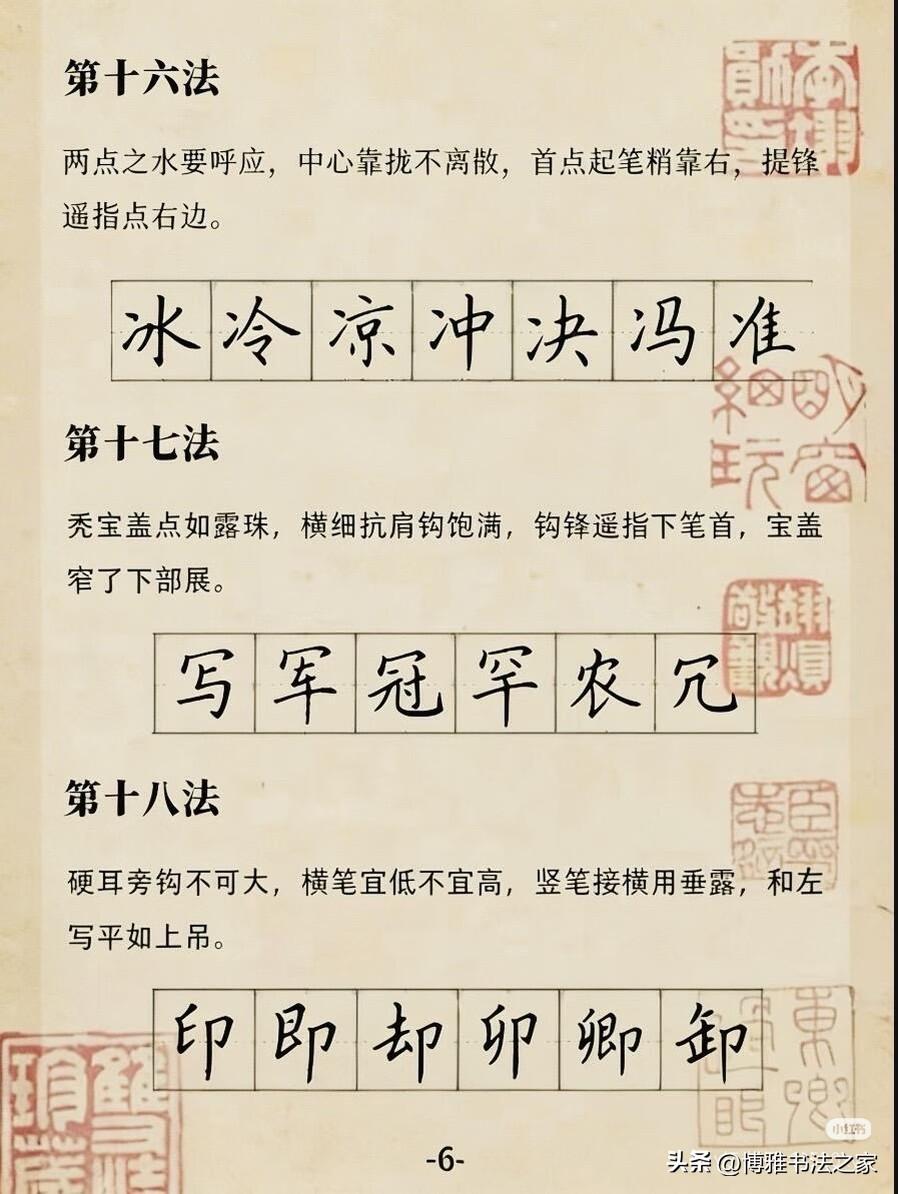 第十六法
两点之水要呼应，中心靠拢不离散，首点起笔稍靠右，提锋
遥指点右边。
冰冷凉冲决冯准
第十七法
秃宝盖点如露珠，横细抗肩钩饱满，钩锋遥指下笔首，宝盖
窄了下部展。
写军冠罕农冗
第十八法
硬耳旁钩不可大，横笔宜低不宜高，竖笔接横用垂露，和左
写平如上吊。
印即却卯卿卸
小红书
-6-
头条 @博雅书法之家